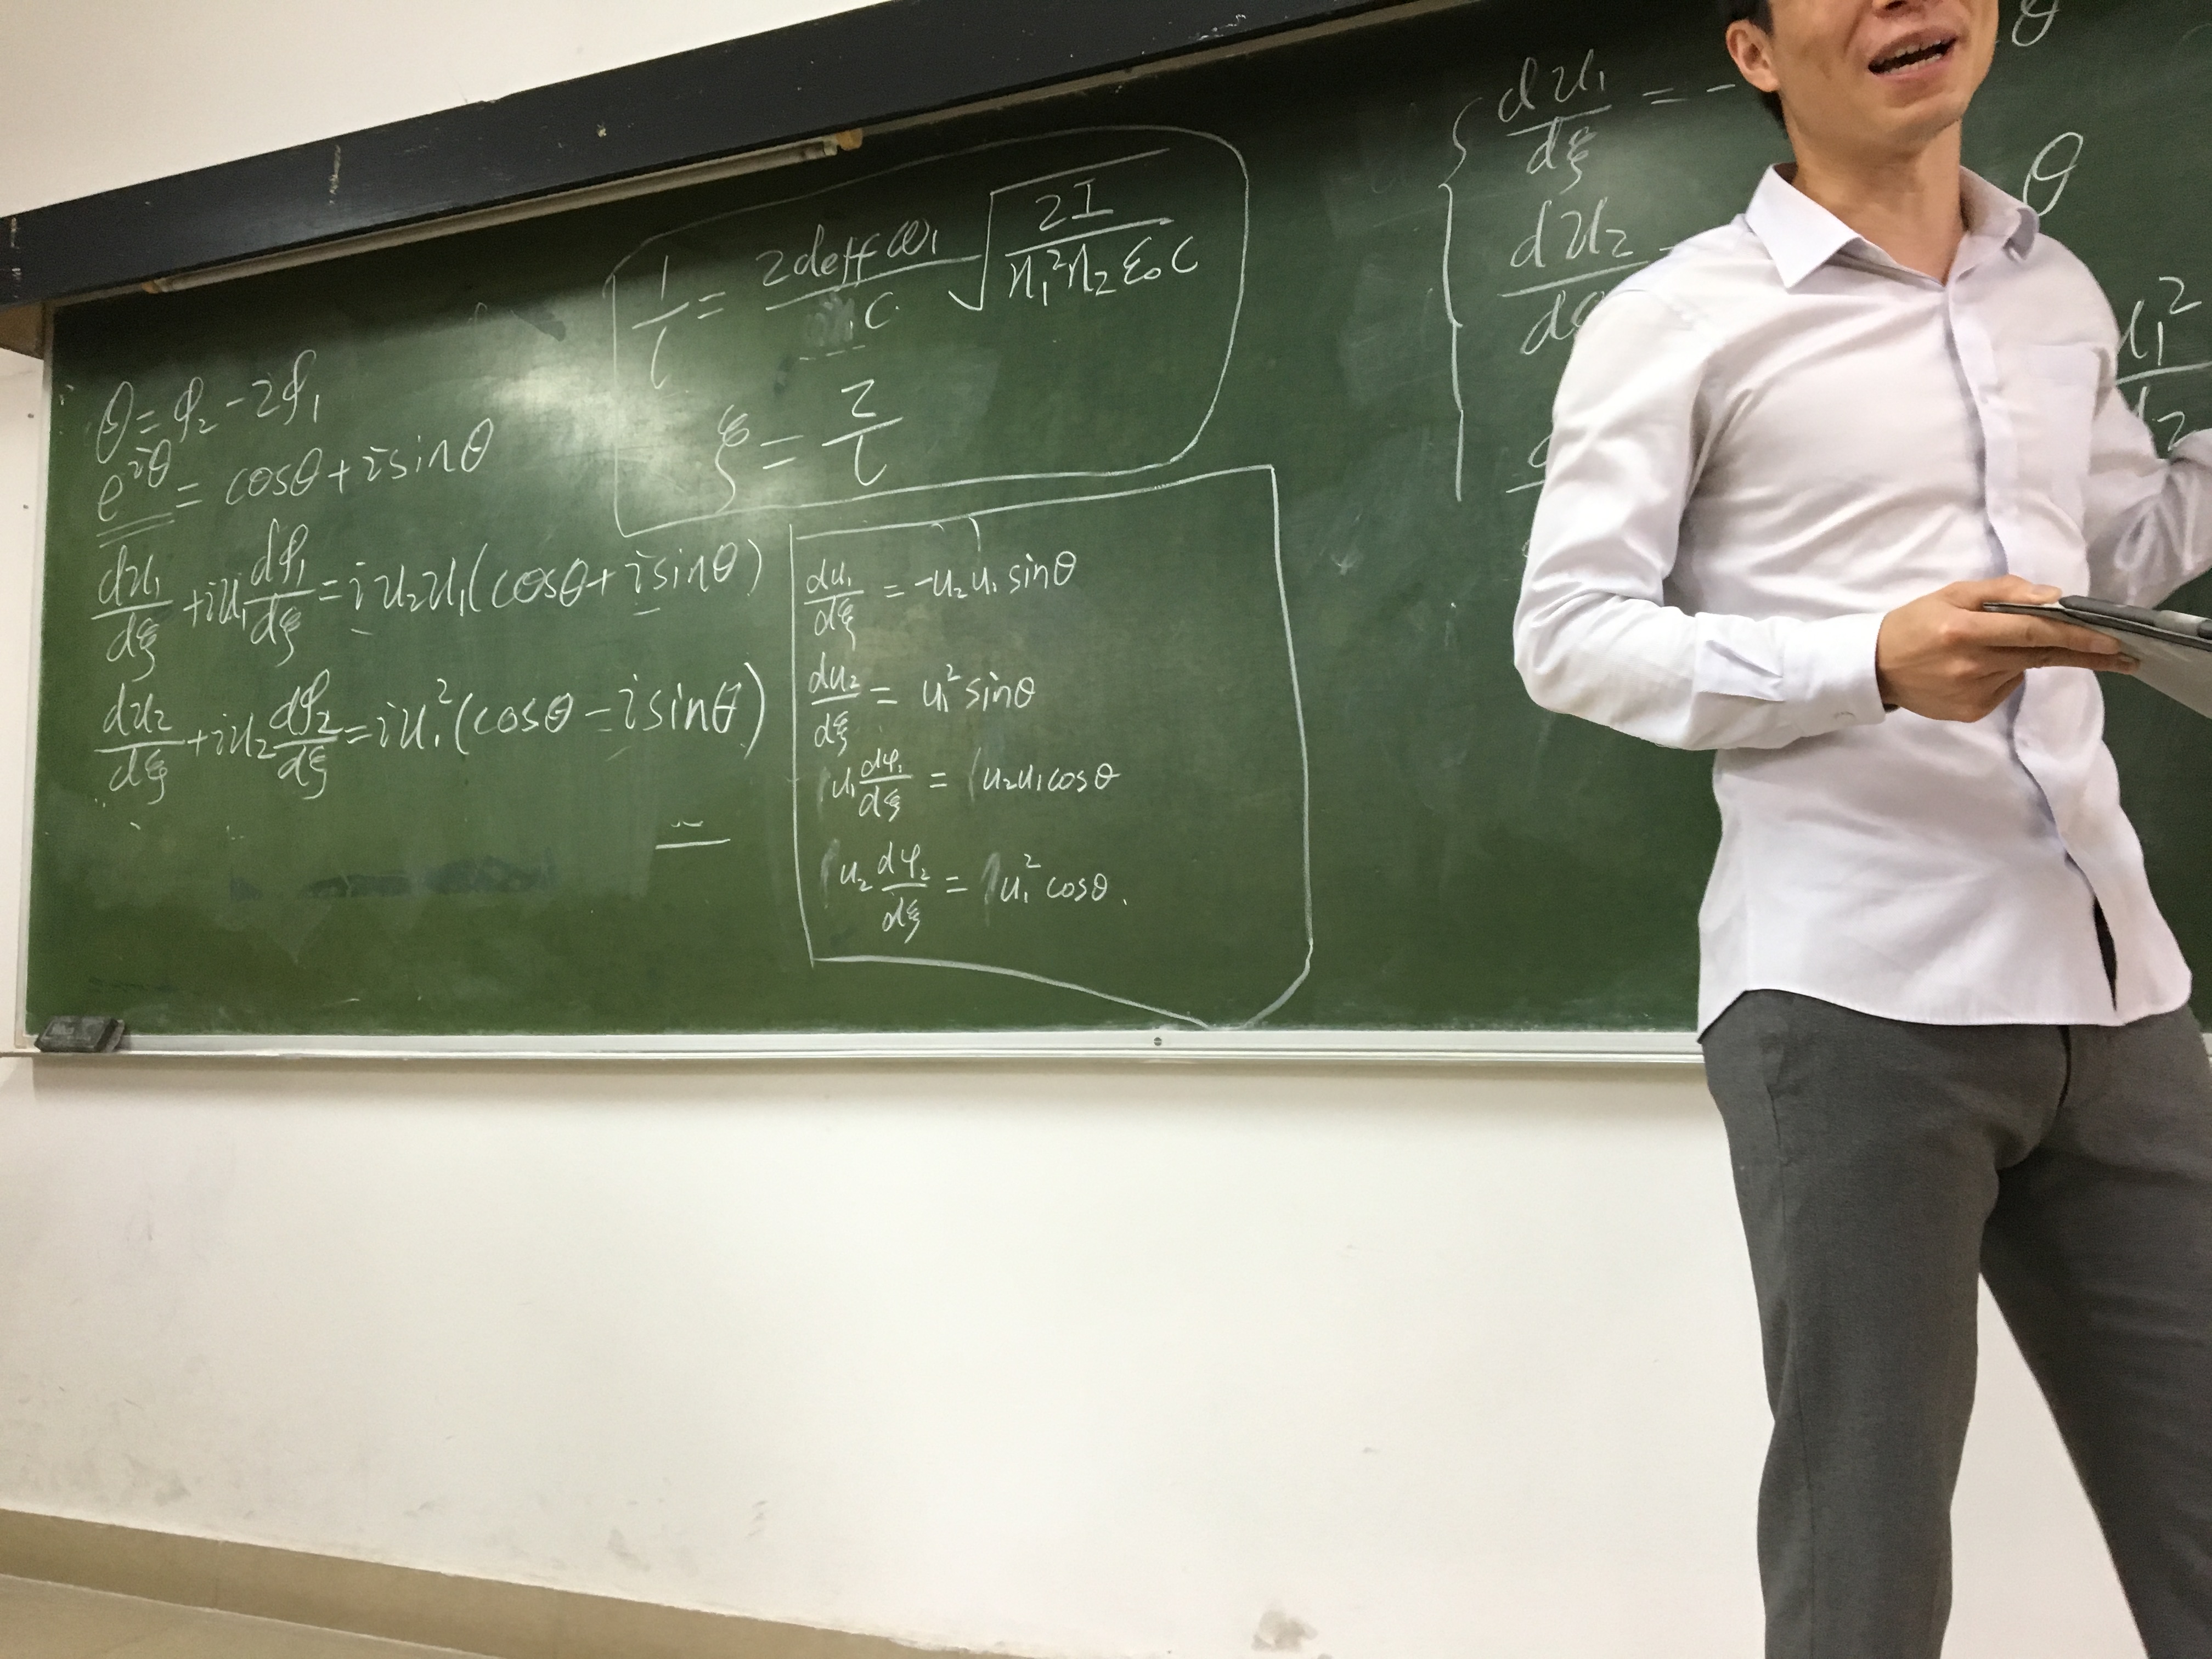 θ = φ₂ - 2φ₁
e^{iθ} = cosθ + i sinθ
du₁/dξ + iu₁ dφ₁/dξ = i u₂u₁(cosθ + i sinθ)
du₂/dξ + iu₂ dφ₂/dξ = iu₁²(cosθ - i sinθ)
1/l = 2deff ω₁/c √(2I/(n₁²n₂ε₀c))
ξ = z/l
du₁/dξ = -u₂u₁ sinθ
du₂/dξ = u₁² sinθ
u₁ dφ₁/dξ = u₂u₁cosθ
u₂ dφ₂/dξ = u₁² cosθ.
du₁/dξ = - θ
du₂/d θ
u₁²